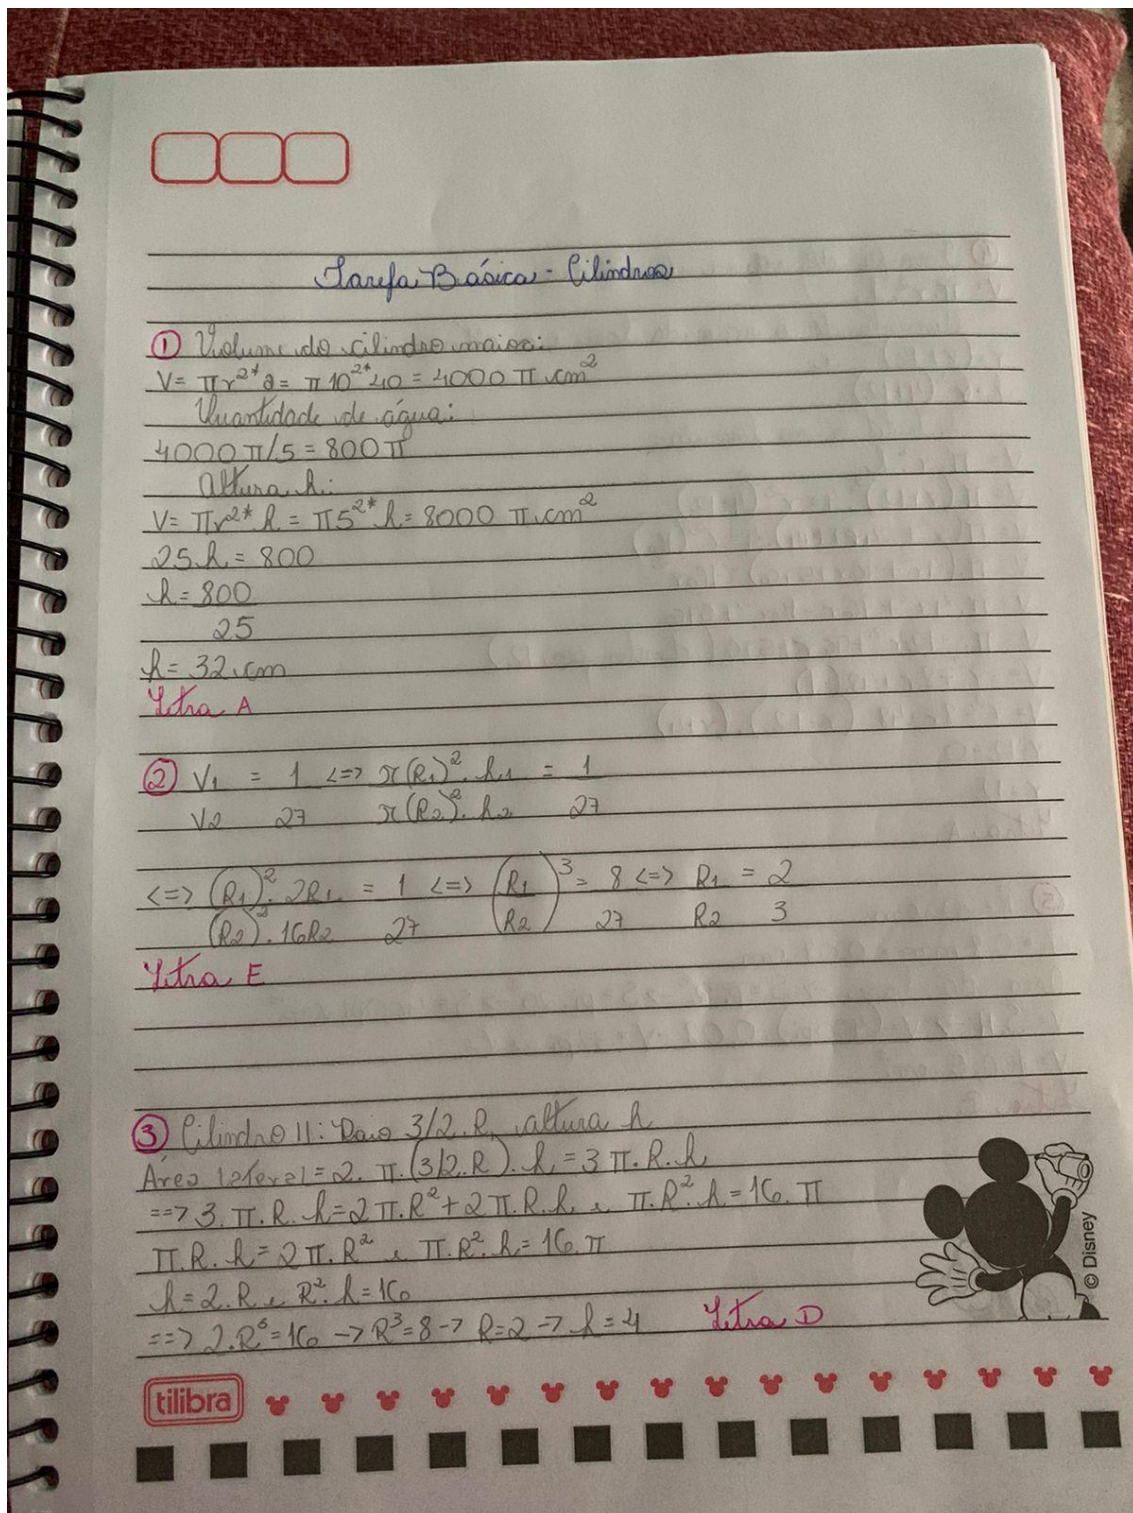 Tarefa Básica - Cilindros
① Volume do cilindro maior:
V = πr²* a = π10²*40 = 4000 π cm²
Quantidade de água:
4000π/5 = 800π
Altura h:
V = πr²* h = π5²* h = 8000 π cm²
25.h = 800
h = 800
25
h = 32 cm
Letra A
② V1 = 1 <=> π(R1)². h1 = 1
V2 27 π(R2)². h2 27
<=> (R1)². 2R1 = 1 <=> (R1)³ = 8 <=> R1 = 2
(R2)². 16R2 27 (R2) 27 R2 3
Letra E
③ Cilindro II: Raio 3/2.R, altura h
Área lateral = 2. π.(3/2.R). h = 3 π.R.h
==> 3.π.R.h = 2π.R² + 2π.R.h e π.R².h = 16.π
π.R.h = 2π.R² e π.R².h = 16.π
h = 2.R e R².h = 16
==> 2.R⁶ = 16 -> R³ = 8 -> R = 2 -> h = 4 Letra D
© Disney
tilibra